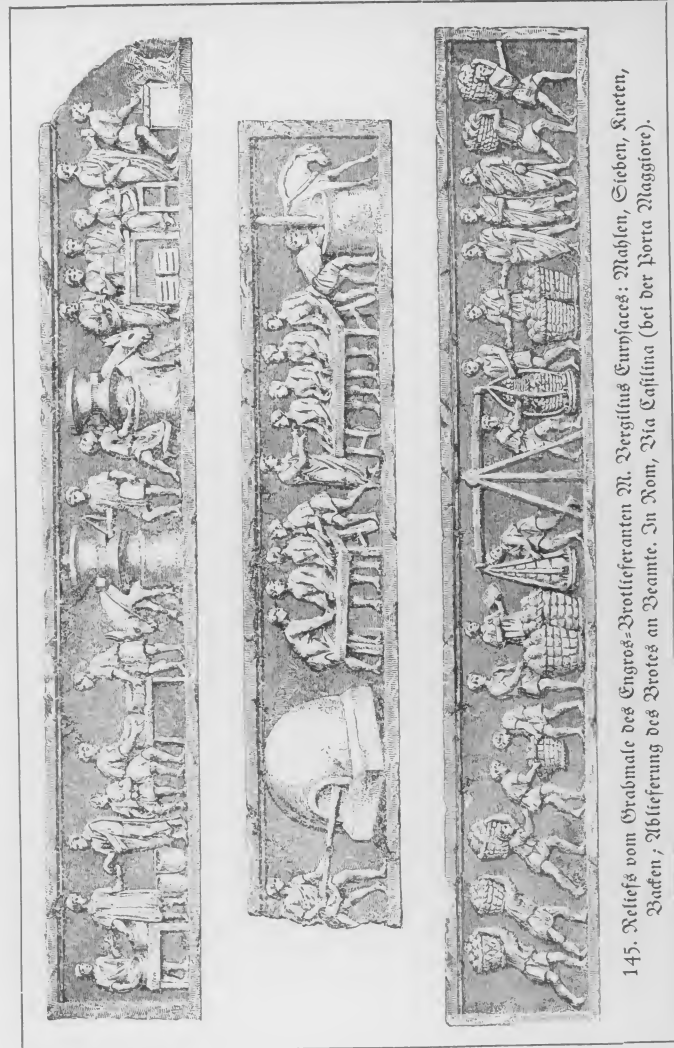 145. Reliefs vom Grabmale des Engros-Brotlieferanten M. Vergilius Eurysaces: Mahlen, Sieben, Kneten,
Backen; Ablieferung des Brotes an Beamte. In Rom, Via Casilina (bei der Porta Maggiore).